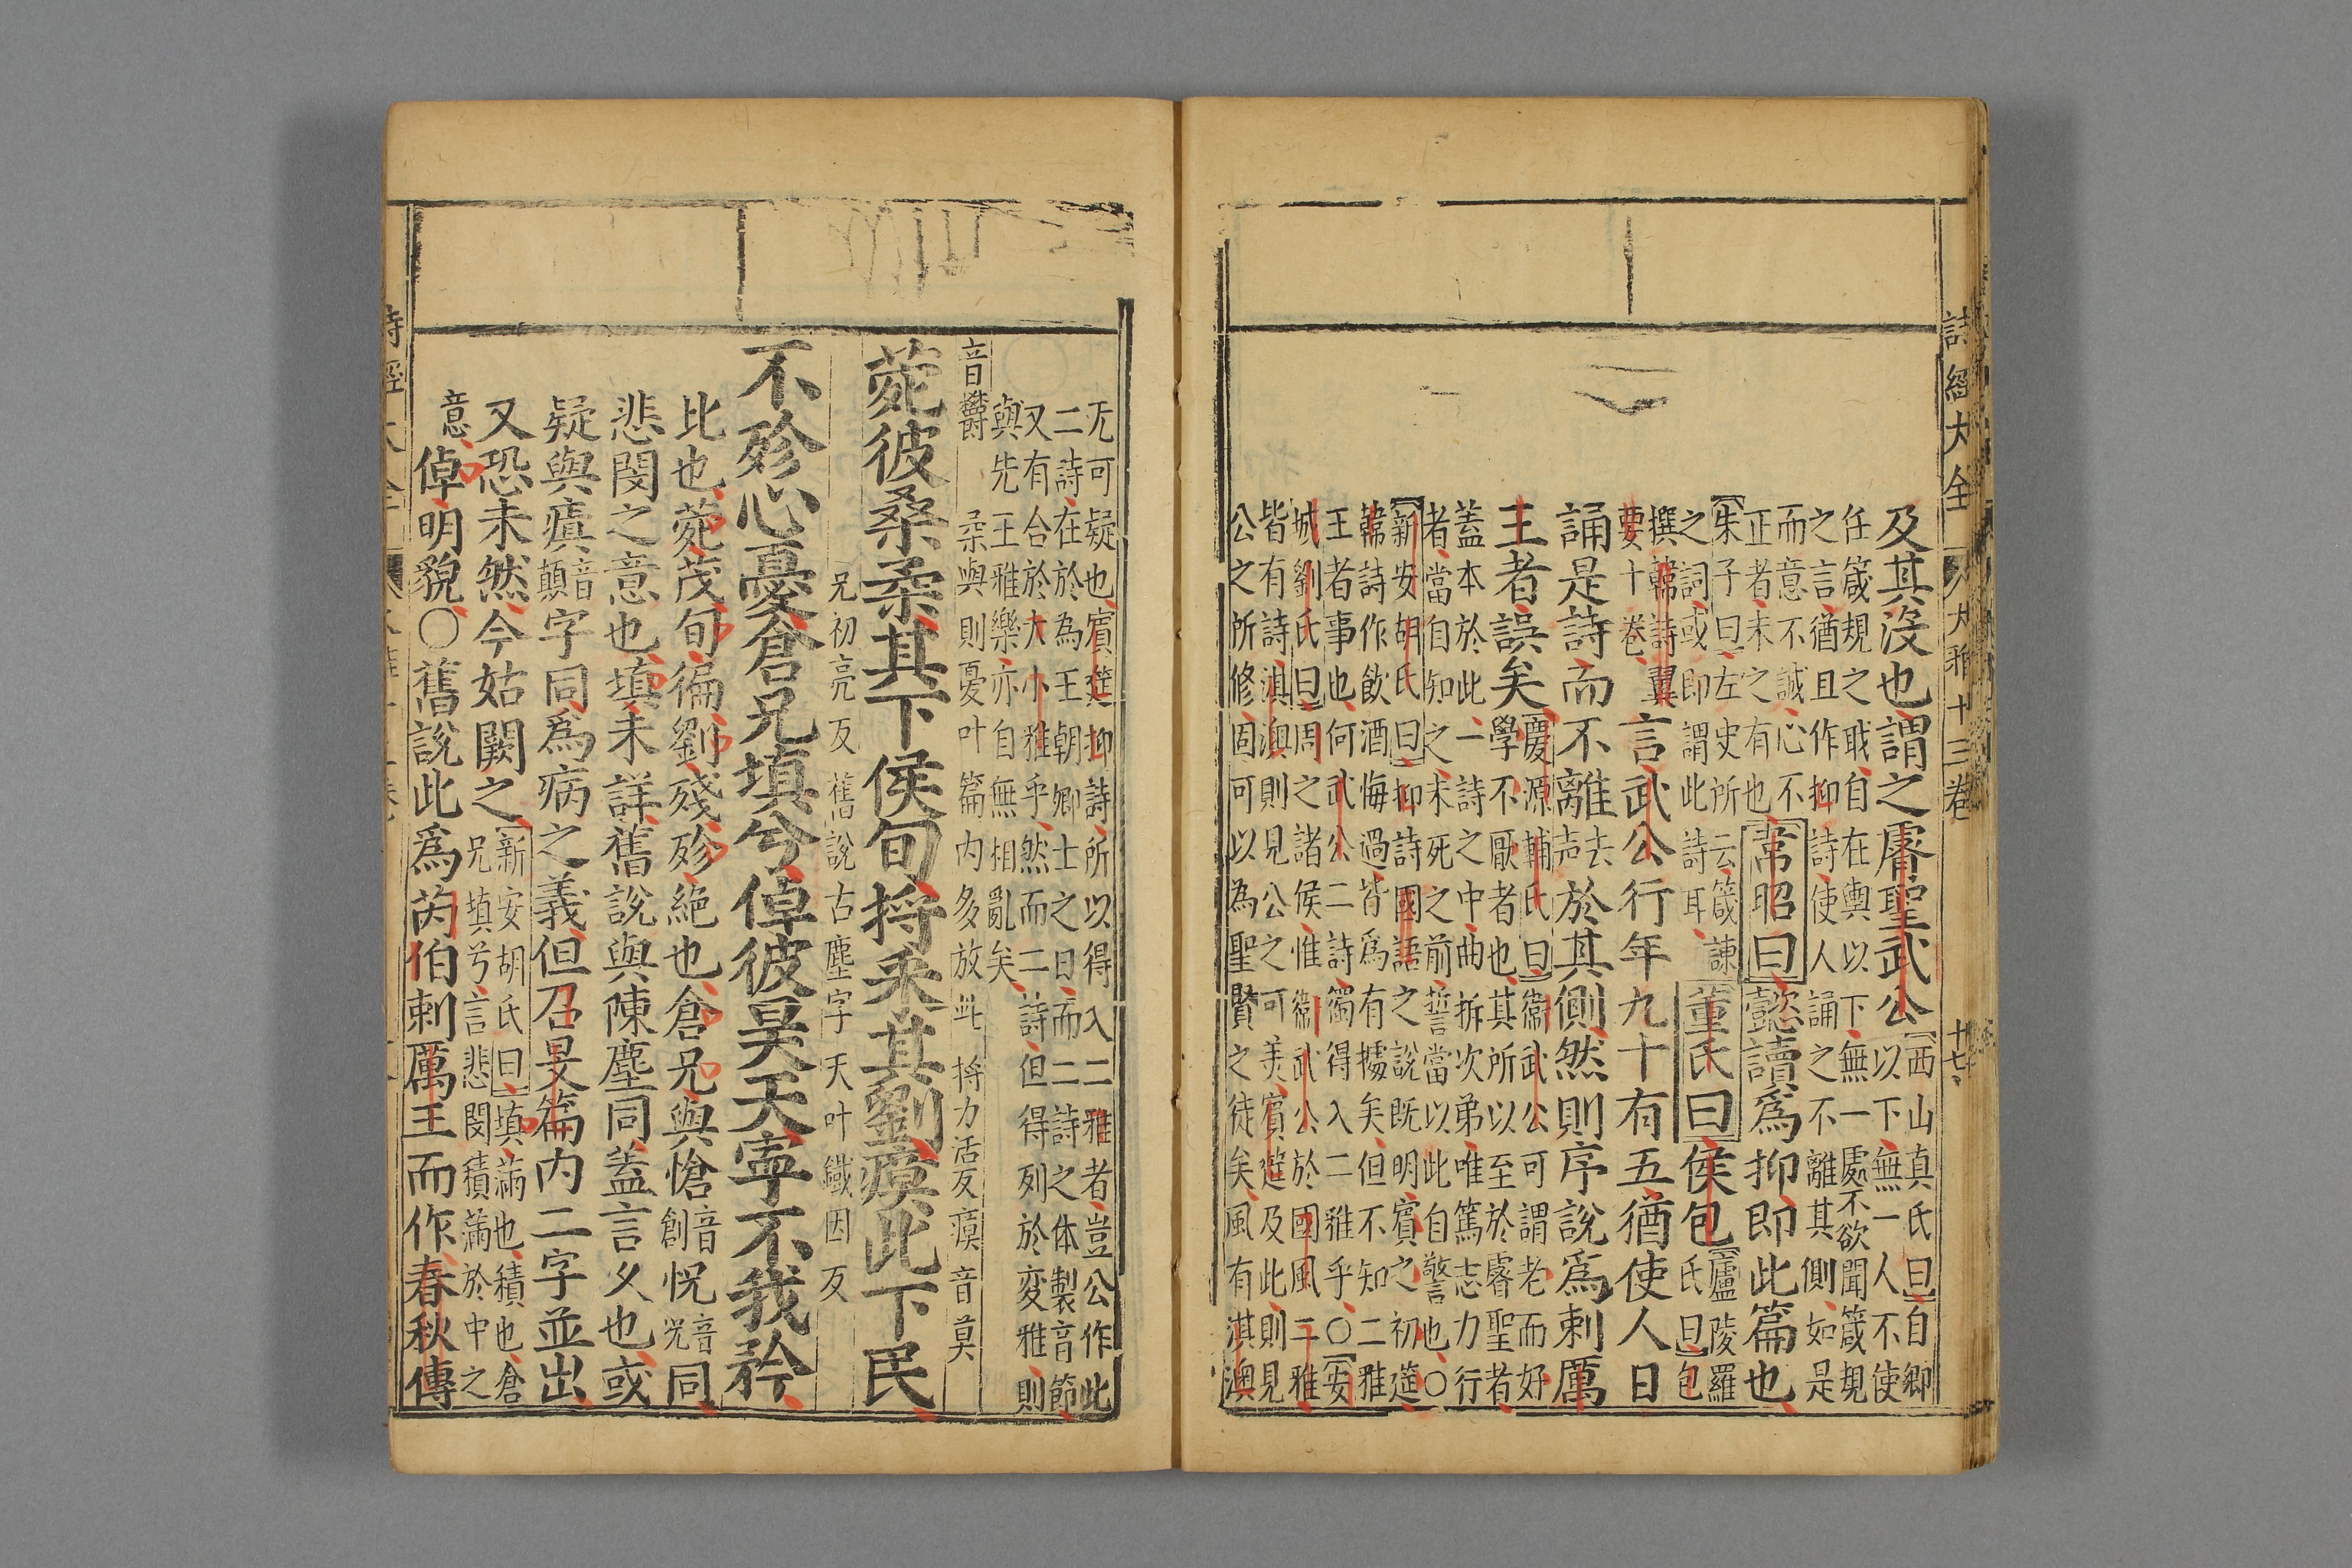 詩經大全
大雅十三卷
十七
及其沒也謂之睿聖武公
西山真氏曰自卿
以下無一人不使
任箴規之戢自在輿以下無一處不欲聞箴規
之言猶且作抑詩使人誦之不離其側如是
而意不誠心不
正者未之有也
常昭曰懿讀爲抑即此篇也
朱子曰左史所云箴諫
之詞或即謂此詩耳
董氏曰侯包
廬陵羅
氏曰包
撰韓詩翼
要十卷
言武公行年九十有五猶使人日
誦是詩而不離
去
声
於其側然則序說爲刺厲
王者誤矣
慶源輔氏曰衞武公可謂老而好
學不厭者也其所以至於睿聖者
蓋本於此一詩之中曲拆次弟唯篤志力行
者當自知之未死之前誓當以此自警也○
新安胡氏曰抑詩國語之說既明賓之初筵
韓詩作飲酒悔過皆爲有㩀矣但不知二雅
王者事也何武公二詩獨得入二雅乎○安
城劉氏曰周之諸侯惟衞武公於國風二雅
皆有詩淇澳則見公之可美賓筵及此則見
公之所修固可以為聖賢之徒矣風有淇澳
无可疑也賓筵抑詩所以得入二雅者豈公作此
二詩在於為王朝卿士之日而二詩之体製音節
又有合於大小雅乎然而二詩但得列於变雅則
與先王雅樂亦自無相亂矣
音鬱
桑與則憂叶篇内多放此
捋力活反瘼音莫
菀彼桑柔其下侯旬捋采其劉瘼此下民
兄初亮反
舊說古塵字
天叶鐵因反
不殄心憂倉兄填兮倬彼昊天寧不我矜
比也菀茂旬徧劉殘殄絶也倉兄與愴
音
創
怳
音
况
同
悲閔之意也填未詳舊說與陳塵同盖言久也或
疑與瘨
音
顛
字同爲病之義但召旻篇内二字並出
又恐未然今姑闕之
新安胡氏曰填滿也積也倉
兄填兮言悲閔積滿於中之
意
倬明貌○舊說此爲芮伯刺厲王而作春秋傳